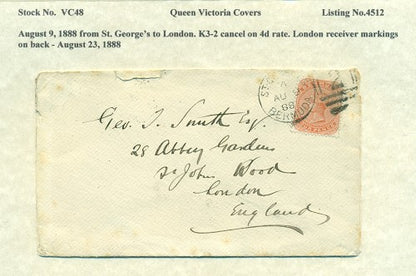 Stock No. VC48 Queen Victoria Covers Listing No.4512
August 9, 1888 from St. George's to London. K3-2 cancel on 4d rate. London receiver markings
on back - August 23, 1888
AU 9
88
BERMUDA
Geo. T. Smith Esq.
28 Abbey Gardens
St Johns Wood
London
England